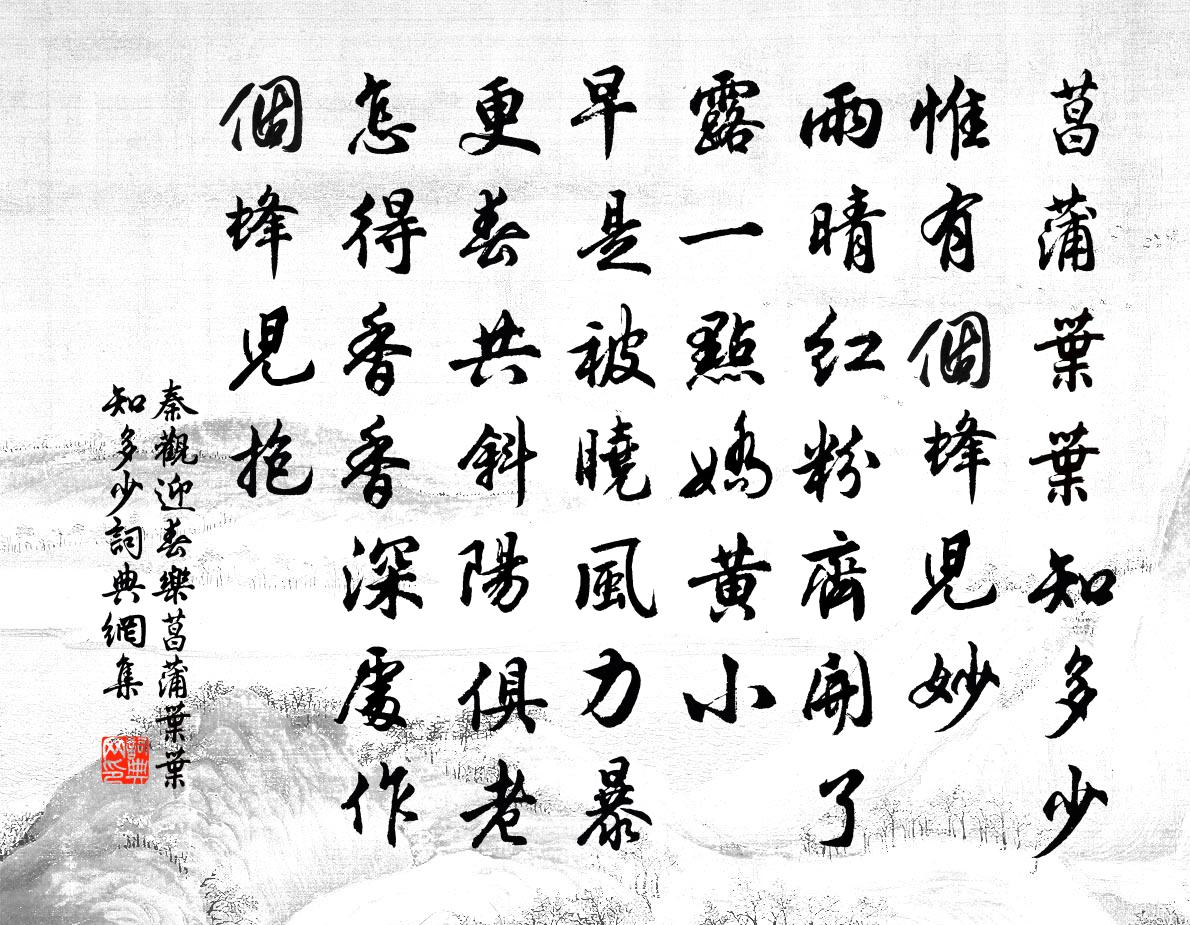 菖蒲葉葉知多少
惟有個蜂兒妙
雨晴紅粉齊開了
露一點嬌黃小
早是被曉風力暴
更春共斜陽俱老
怎得香香深處作
個蜂兒抱
秦觀迎春樂菖蒲葉葉
知多少詞典網集
詞典
网印